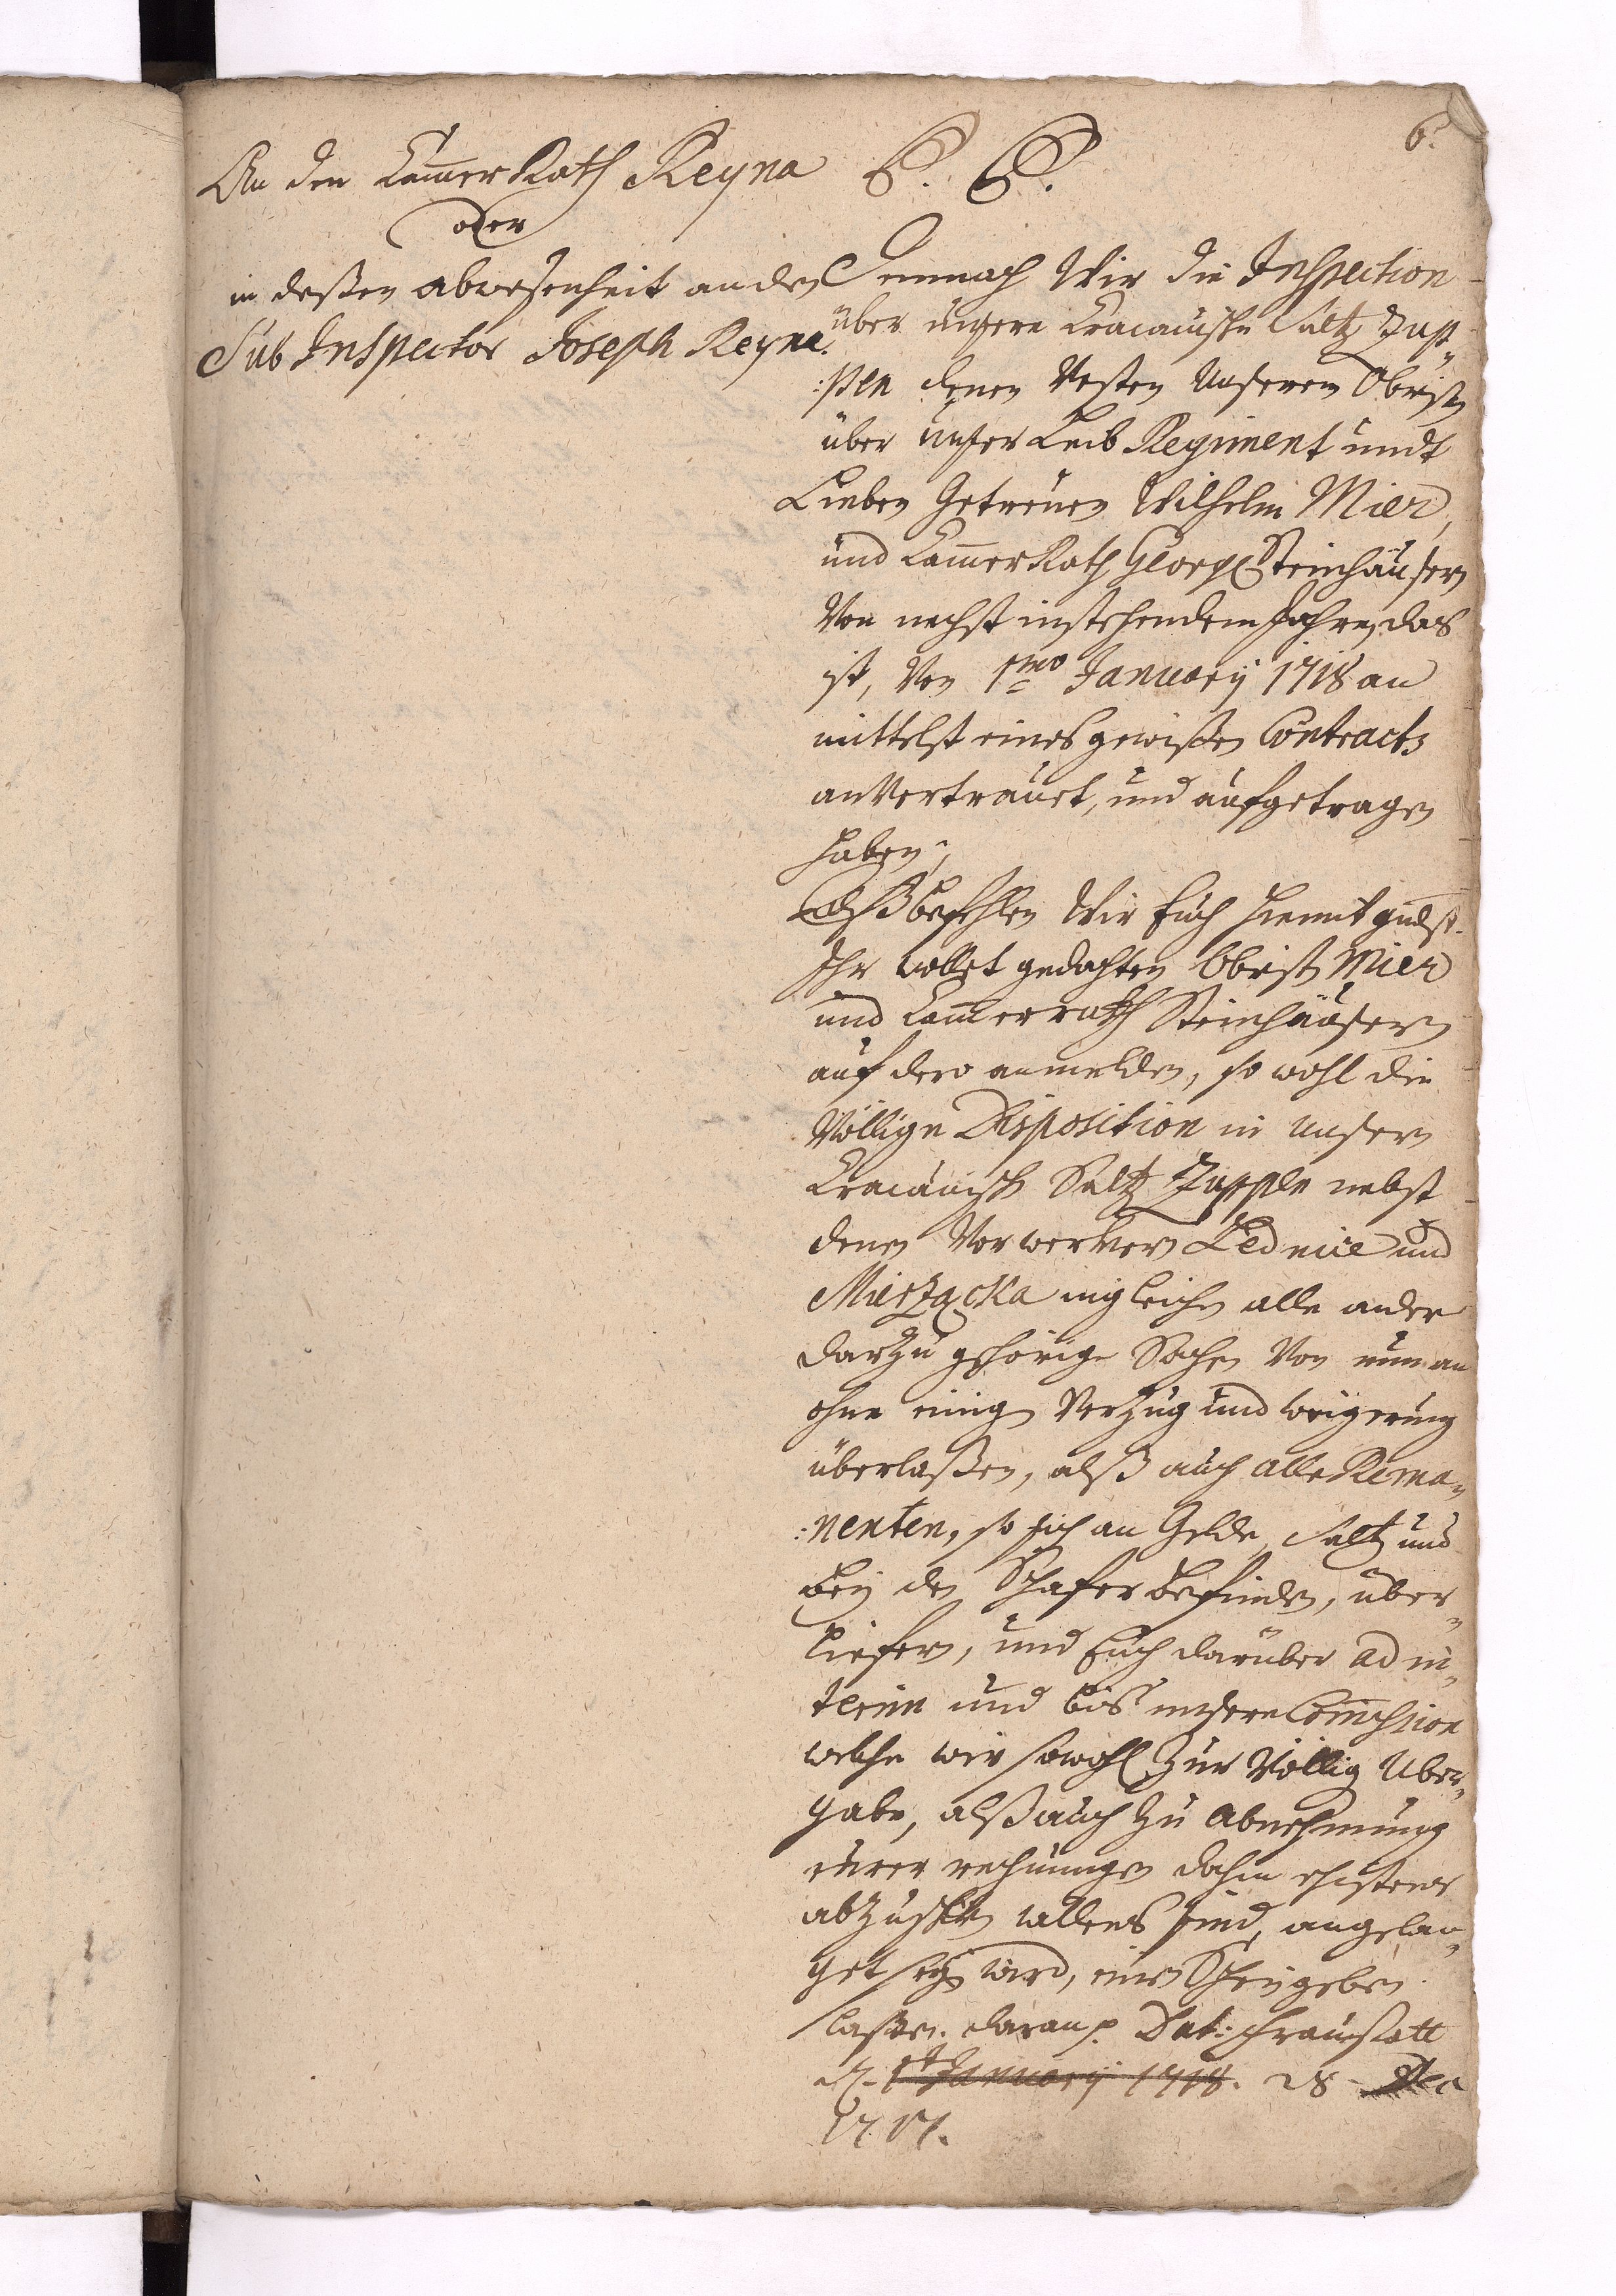 6.
An den Cam̄er Rath Reyna
oder
in deßen abwesenheit an den
Sub Inspector Joseph Reyna.
Demnach Wir die Inspection
über unsere Cracauische Saltz Zup-
:pen denen Vesten Unserem Obrist
über unser Leib Regiment undt
Lieben Getreuen Wilhelm Mier,
und Cam̄er Rath George Steinhäusern
Von nechst instehendem Jahre, das
ist, Von 1mo January 1718 an
mittelst eines gewißen Contracts
anVertrauet, und aufgetragen
haben;
Alß befehlen Wir Euch hiermit gndst.
Ihr wollet gedachten Obrist Mier
und Cam̄errath Steinhäusern
auf dero anmelden, so wohl die
Völlige Disposition in unsern
Cracauisch Saltz Zuppen nebst
denen Vorwerkern Lednice und
Mierzącka ingleichen alle andere
darzu gehörige Sachen Von nun an
ohne einig Verzug und weigerung
überlaßen, alß auch alle Rema-
:nenten, so sich an Gelde, Saltz und
bey den Schafer befinden, über-
liefern, und Euch darüber ad in-
terim und biß unsere Com̄ission
welche wir sowohl zur Völlig Uber-
gabe, alß auch zu Abnehmung
eurer rechnungen dahin ehistens
abzuschicken willens sind, angelan-
get seyn wird, einen Schein geben
laßen. daran p. Dat: Fraustatt
d. 1 January 1718. 28 Dec
1717.